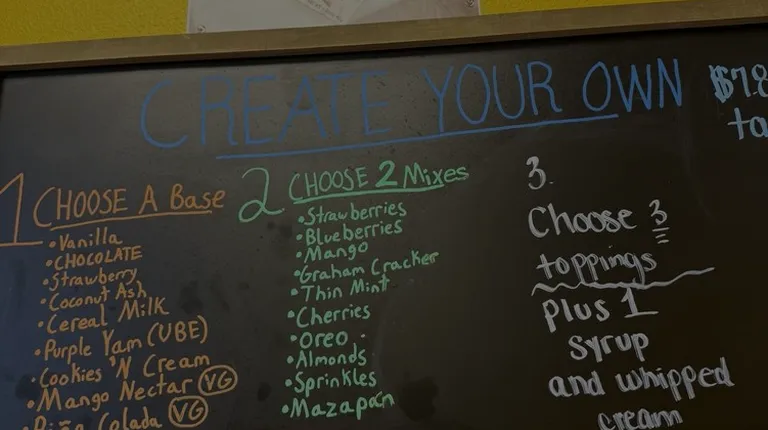 CREATE YOUR OWN
1 CHOOSE A Base
• Vanilla
• CHOCOLATE
• Strawberry
• Coconut Ash
• Cereal Milk
• Purple Yam (UBE)
• Cookies 'N Cream
• Mango Nectar VG
• Piña Colada VG
2 CHOOSE 2 Mixes
• Strawberries
• Blueberries
• Mango
• Graham Cracker
• Thin Mint
• Cherries
• Oreo
• Almonds
• Sprinkles
• Mazapán
3.
Choose 3
toppings
plus 1
syrup
and whipped
cream